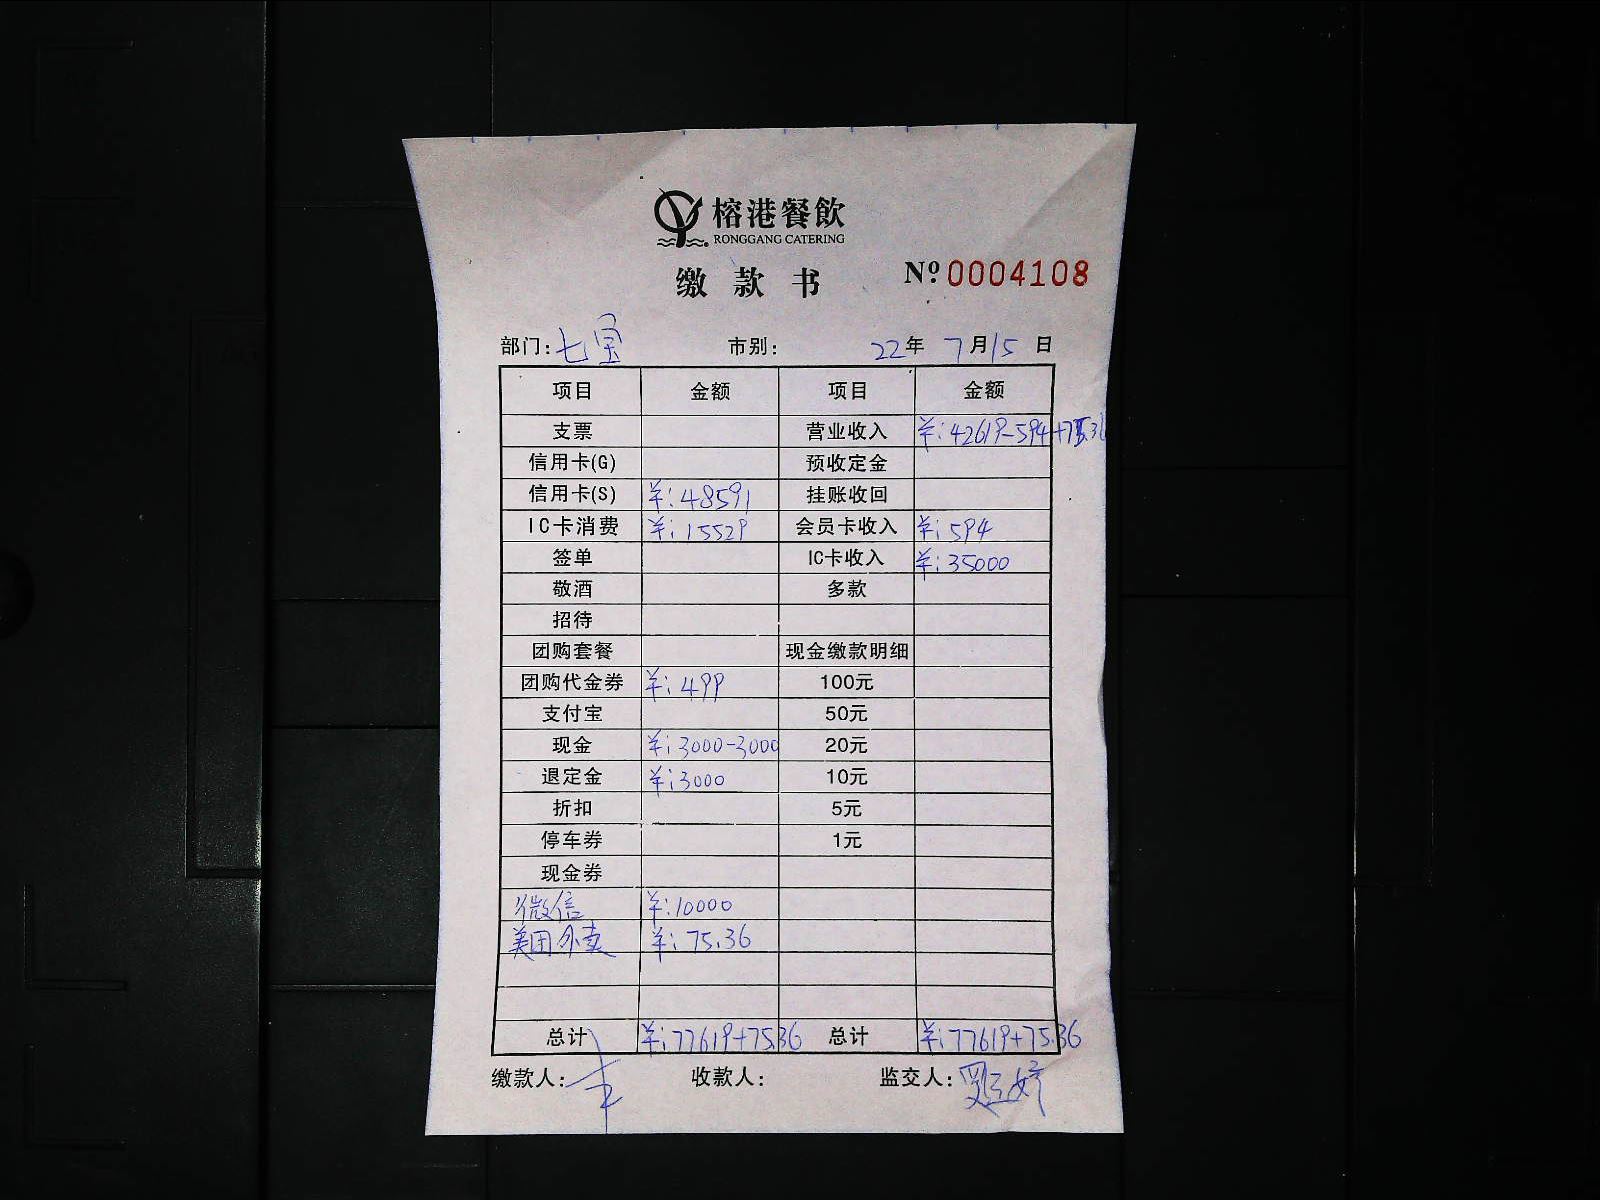 榕港餐飲
RONGGANG CATERING
缴款书 Nº 0004108
部门：七宝 市别： 22年 7月15日
项目 金额 项目 金额
支票 营业收入 ¥:42619-594+75.36
信用卡(G) 预收定金
信用卡(S) ¥:48591 挂账收回
IC卡消费 ¥:15529 会员卡收入 ¥:594
签单 IC卡收入 ¥:35000
敬酒 多款
招待
团购套餐 现金缴款明细
团购代金券 ¥:499 100元
支付宝 50元
现金 ¥:3000-3000 20元
退定金 ¥:3000 10元
折扣 5元
停车券 1元
现金券
微信 ¥:10000
美团外卖 ¥:75.36
总计 ¥:77619+75.36 总计 ¥:77619+75.36
缴款人： 收款人： 监交人：